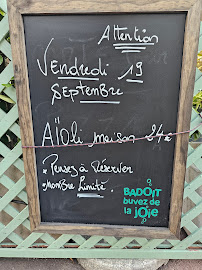 Attention
Vendredi 19
Septembre
Aïoli maison 24€
* Pensez à Réserver
* nombre Limité.
BADOIT
buvez de
la joie